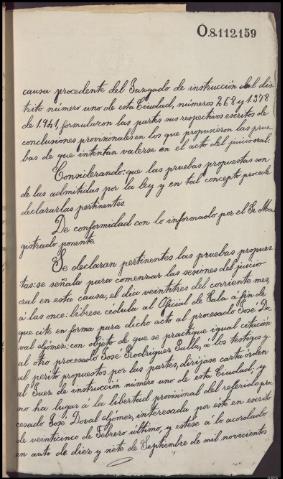 O.8.112159
causa procedente del Juzgado de instrucción del dis-
trito número uno de esta Ciudad, números 268 y 1378
de 1.941, formularon las partes sus respectivos escritos de
conclusiones provisionales en los que propusieron las prue-
bas de que intentan valerse en el acto del juicio oral.
Considerando: que las pruebas propuestas son
de las admitidas por la ley y en tal concepto procede
declararlas pertinentes.
De conformidad con lo informado por el Sr. Ma-
gistrado ponente.
Se declaran pertinentes las pruebas propues-
tas: se señala para comenzar las sesiones del juicio
oral en esta causa, el dia veintitres del corriente mes,
á las once: librese cédula al Oficial de Sala a fin de
que cite en forma para dicho acto al procesado José Do-
val; con objeto de que se practique igual citación
al otro procesado José Rodriguez, á los testigos y
al perito propuestos por las partes, dirijase carta orden
al Juez de instrucción número uno de esta Ciudad, y
no ha lugar á la libertad provisional del referido pro-
cesado José Doval, interesada por éste en escrito
de veinticinco de Febrero último, y estese á lo acordado
en auto de diez y siete de Septiembre de mil novecientos